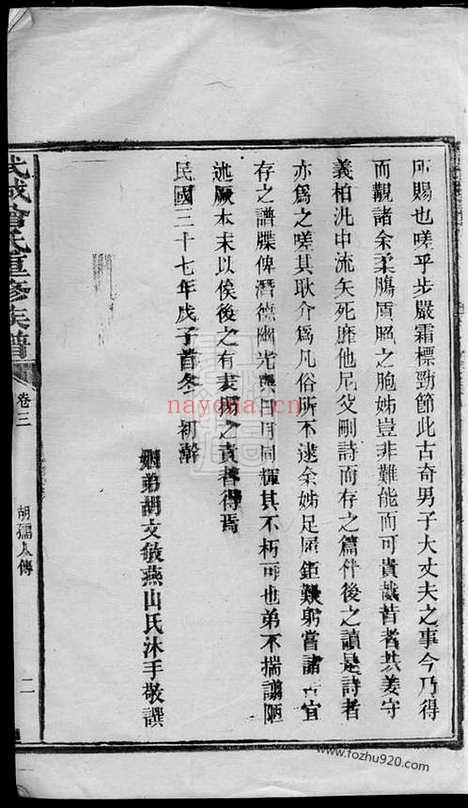 所賜也嗟乎步嚴霜標勁節此古奇男子大丈夫之事今乃得
而覯諸余柔腸盾照之胞姊豈非難能而可貴哉昔者共姜守
義柏汎中流矢死靡他尼父刪詩而存之篇什後之讀是詩者
亦爲之嗟其耿介爲凡俗所不逮余姊足履鉅艱躬嘗諸宜
存之譜牒俾潛德幽光與日月同輝其不朽可也弟不揣謭陋
述厥本末以俟後之有表揚之責者得焉
民國三十七年戊子首冬初澣
姻弟胡文敏燕山氏沐手敬譔
武城曾氏重修族譜
卷三
胡孺人傳
二
nayona.cn
www.fozhu920.com